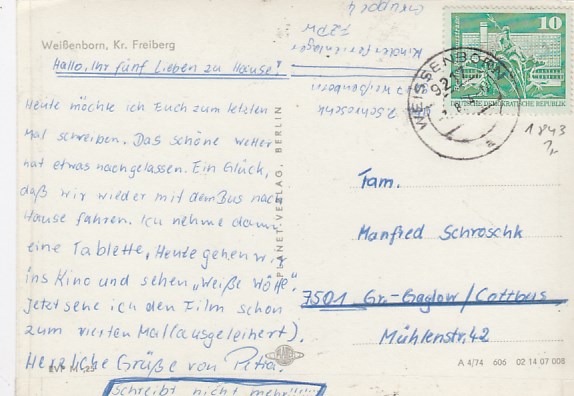 Weißenborn, Kr. Freiberg
Hallo, Ihr fünf Lieben zu Hause!
Heute möchte ich Euch zum letzten
Mal schreiben. Das schöne Wetter
hat etwas nachgelassen. Ein Glück,
daß wir wieder mit dem Bus nach
Hause fahren. Ich nehme dann
eine Tablette, Heute gehen wir
ins Kino und sehen „Weiße Wölfe".
Jetzt sehe ich den Film schon
zum vierten Mal(ausgeleihert).
Herzliche Grüße von Petra.
Schreibt nicht mehr!!!!
PLANET-VERLAG, BERLIN
Gruppe 4
FZPW
Kinderferienlager
Weißenborn
P. Schroschk
WEISSENBORN
10
DEUTSCHE DEMOKRATISCHE REPUBLIK
1843
Fam.
Manfred Schroschk
7501 Gr.-Gaglow/Cottbus
Mühlenstr. 42
A 4/74 606 02 14 07 008